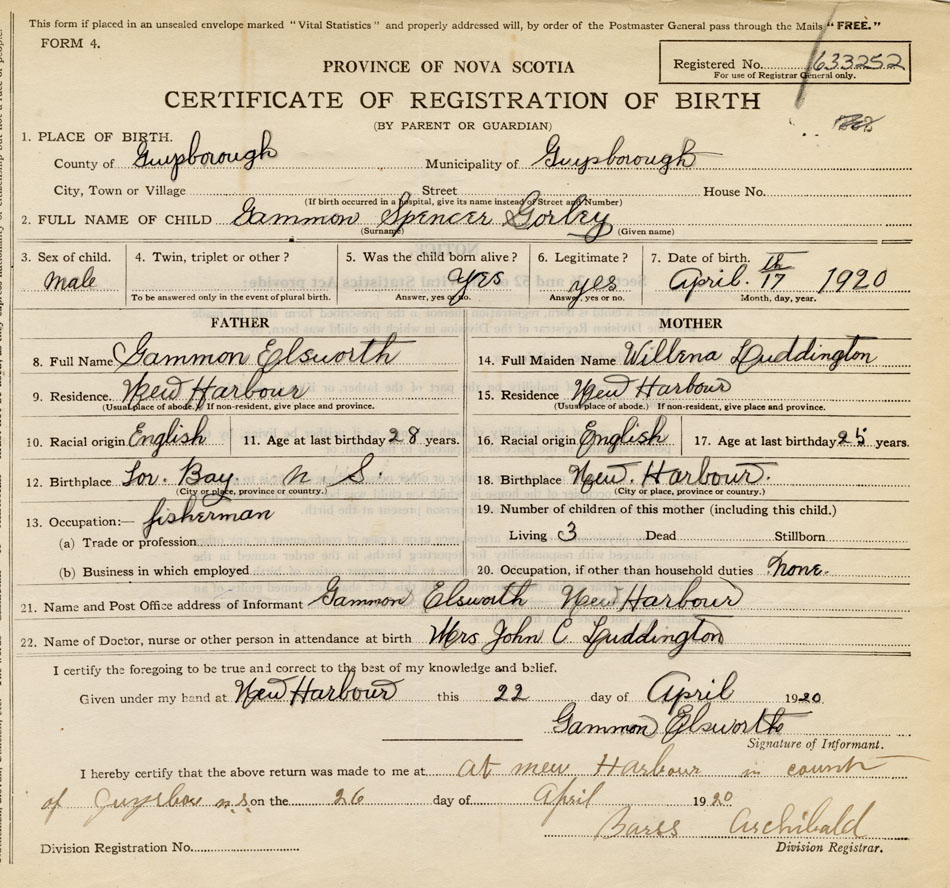 This form if placed in an unsealed envelope marked "Vital Statistics" and properly addressed will, by order of the Postmaster General pass through the Mails "FREE."
FORM 4.
Registered No. 633252
For use of Registrar General only.
PROVINCE OF NOVA SCOTIA
CERTIFICATE OF REGISTRATION OF BIRTH
(BY PARENT OR GUARDIAN)
1. PLACE OF BIRTH.
County of Guysborough Municipality of Guysborough
City, Town or Village Street House No.
(If birth occurred in a hospital, give its name instead of Street and Number)
2. FULL NAME OF CHILD Gammon Spencer Gorley
(Surname) (Given name)
3. Sex of child. 4. Twin, triplet or other? 5. Was the child born alive? 6. Legitimate? 7. Date of birth.
Male yes yes April. 17th 1920
To be answered only in the event of plural birth. Answer, yes or no. Answer, yes or no. Month, day, year.
FATHER MOTHER
8. Full Name Gammon Elsworth 14. Full Maiden Name Wilbena Luddington
9. Residence. New Harbour 15. Residence New Harbour
(Usual place of abode.) If non-resident, give place and province. (Usual place of abode.) If non-resident, give place and province.
10. Racial origin English 11. Age at last birthday 28 years. 16. Racial origin English 17. Age at last birthday 25 years.
12. Birthplace Tor. Bay. N. S. 18. Birthplace New. Harbour.
(City or place, province or country.) (City or place, province or country.)
13. Occupation:— fisherman 19. Number of children of this mother (including this child.)
(a) Trade or profession Living 3 Dead Stillborn
(b) Business in which employed 20. Occupation, if other than household duties None.
21. Name and Post Office address of Informant Gammon Elsworth New Harbour
22. Name of Doctor, nurse or other person in attendance at birth Mrs John C Luddington
I certify the foregoing to be true and correct to the best of my knowledge and belief.
Given under my hand at New Harbour this 22 day of April 1920
Gammon Elsworth
Signature of Informant.
I hereby certify that the above return was made to me at at new Harbour in count
of Guysboro n.s on the 26 day of April 1920
Barss Archibald
Division Registration No. Division Registrar.